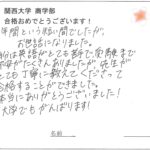 関西大学 商学部
合格おめでとうございます！
年間という短い間でしたが、
お世話になりました。
は英語がとても苦手で
がたくさんありましたが、先生が
とても丁寧に教えてくださって
合格することができました。
本当にありがとうございました！
大学でもがんばります！
名前